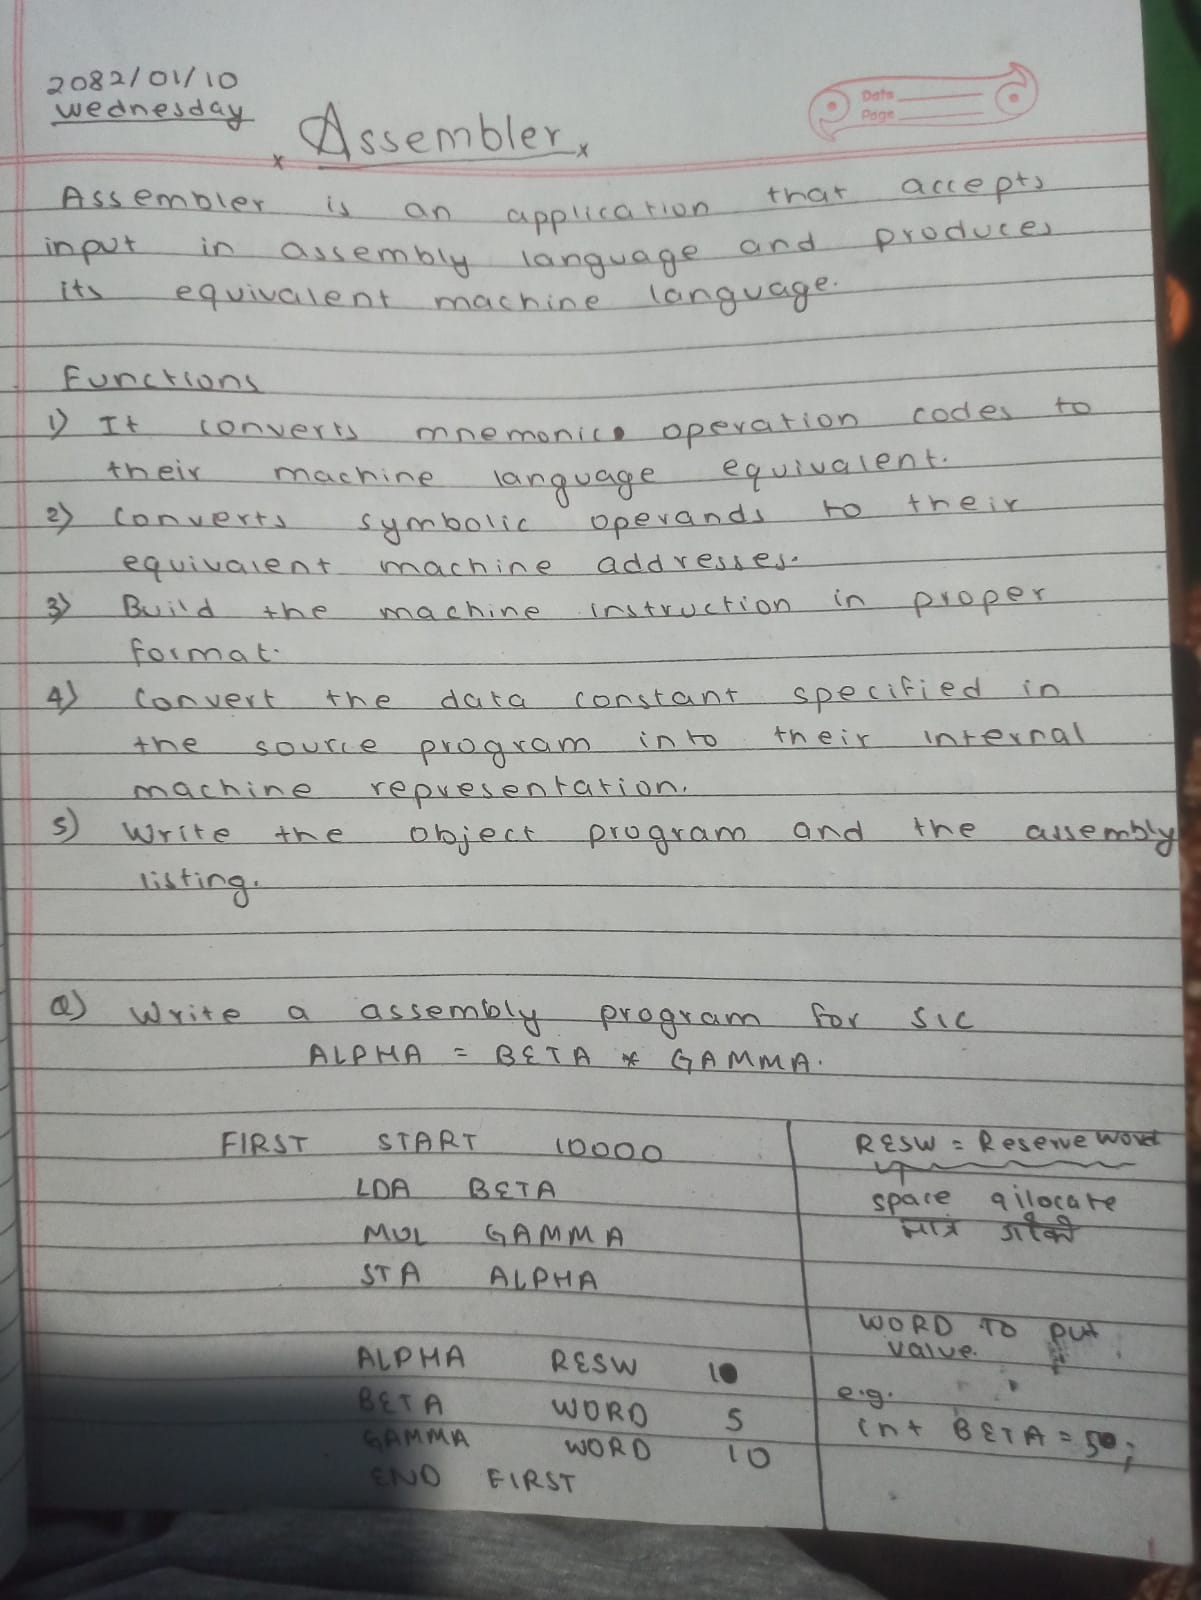 2082/01/10
Wednesday
Assembler
Date
Page
Assembler is an application that accepts
input in assembly language and produces
its equivalent machine language.
Functions
1) It converts mnemonics operation codes to
their machine language equivalent.
2) Converts symbolic operands to their
equivalent machine addresses.
3) Build the machine instruction in proper
format.
4) Convert the data constant specified in
the source program into their internal
machine representation.
5) Write the object program and the assembly
listing.
Q) Write a assembly program for SIC
ALPHA = BETA * GAMMA.
FIRST START 10000
LDA BETA
MUL GAMMA
STA ALPHA
ALPHA RESW 10
BETA WORD 5
GAMMA WORD 10
END FIRST
RESW = Reserve word
space allocate
मात्र
WORD TO put
value.
e.g.
int BETA = 50;